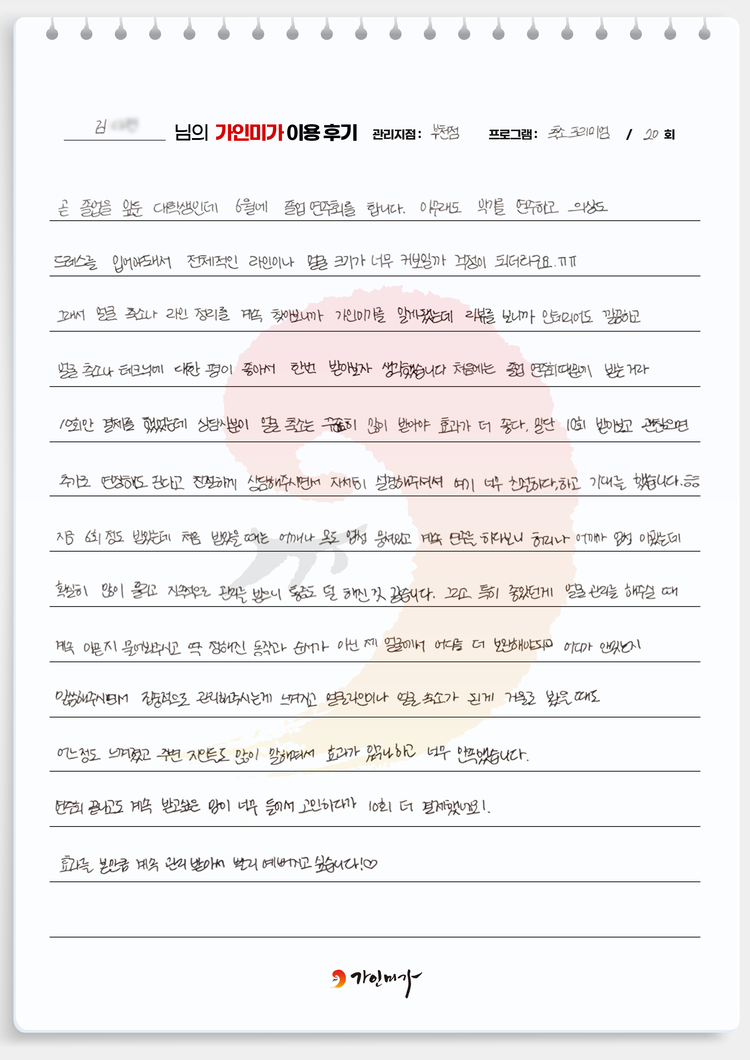 김 님의 가인미가 이용 후기 관리지점 : 부천점 프로그램 : 축소 프리미엄 / 20 회
곧 졸업을 앞둔 대학생인데 6월에 졸업 연주회를 합니다. 아무래도 악기를 연주하고 의상도
드레스를 입어야돼서 전체적인 라인이나 얼굴 크기가 너무 커보일까 걱정이 되더라구요.ㅠㅠ
그래서 얼굴 축소나 라인 정리를 계속 찾아보니까 가인미가를 알게됐는데 리뷰를 보니까 인위적이도 깔끔하고
얼굴 축소나 테크닉에 대한 평이 좋아서 한번 받아보자 생각했습니다 처음에는 졸업 연주회때문에 받는거라
10회만 결제를 했었는데 상담사분이 얼굴 축소는 꾸준히 많이 받아야 효과가 더 좋다, 일단 10회 받아보고 괜찮으면
추가로 연장해도 된다고 친절하게 상담해주시면서 자세히 설명해주셔서 여기 너무 친절하다,하고 기대를 했습니다.ㅎㅎ
지금 6회 정도 받았는데 처음 받았을 때는 어깨나 목도 엄청 뭉쳐있고 계속 연주를 하다보니 허리나 어깨가 엄청 아팠는데
확실히 많이 풀리고 지속적으로 관리를 받으니 통증도 덜 해진 것 같습니다. 그리고 특히 좋았던게 얼굴 관리를 해주실 때
계속 아픈지 물어봐주시고 딱 정해진 동작과 순서가 아닌 제 얼굴에서 어디를 더 보완해야되고 어디가 안맞는지
말씀해주시면서 집중적으로 관리해주시는게 느껴지고 얼굴라인이나 얼굴 축소가 된게 거울로 봤을 때도
어느정도 느껴졌고 주변 지인들도 많이 말해줘서 효과가 있구나하고 너무 만족했습니다.
연주회 끝나고도 계속 받고싶은 맘이 너무 들어서 고민하다가 10회 더 결제했네요!.
효과를 본만큼 계속 관리 받아서 빨리 예뻐지고 싶습니다!♡
가인미가